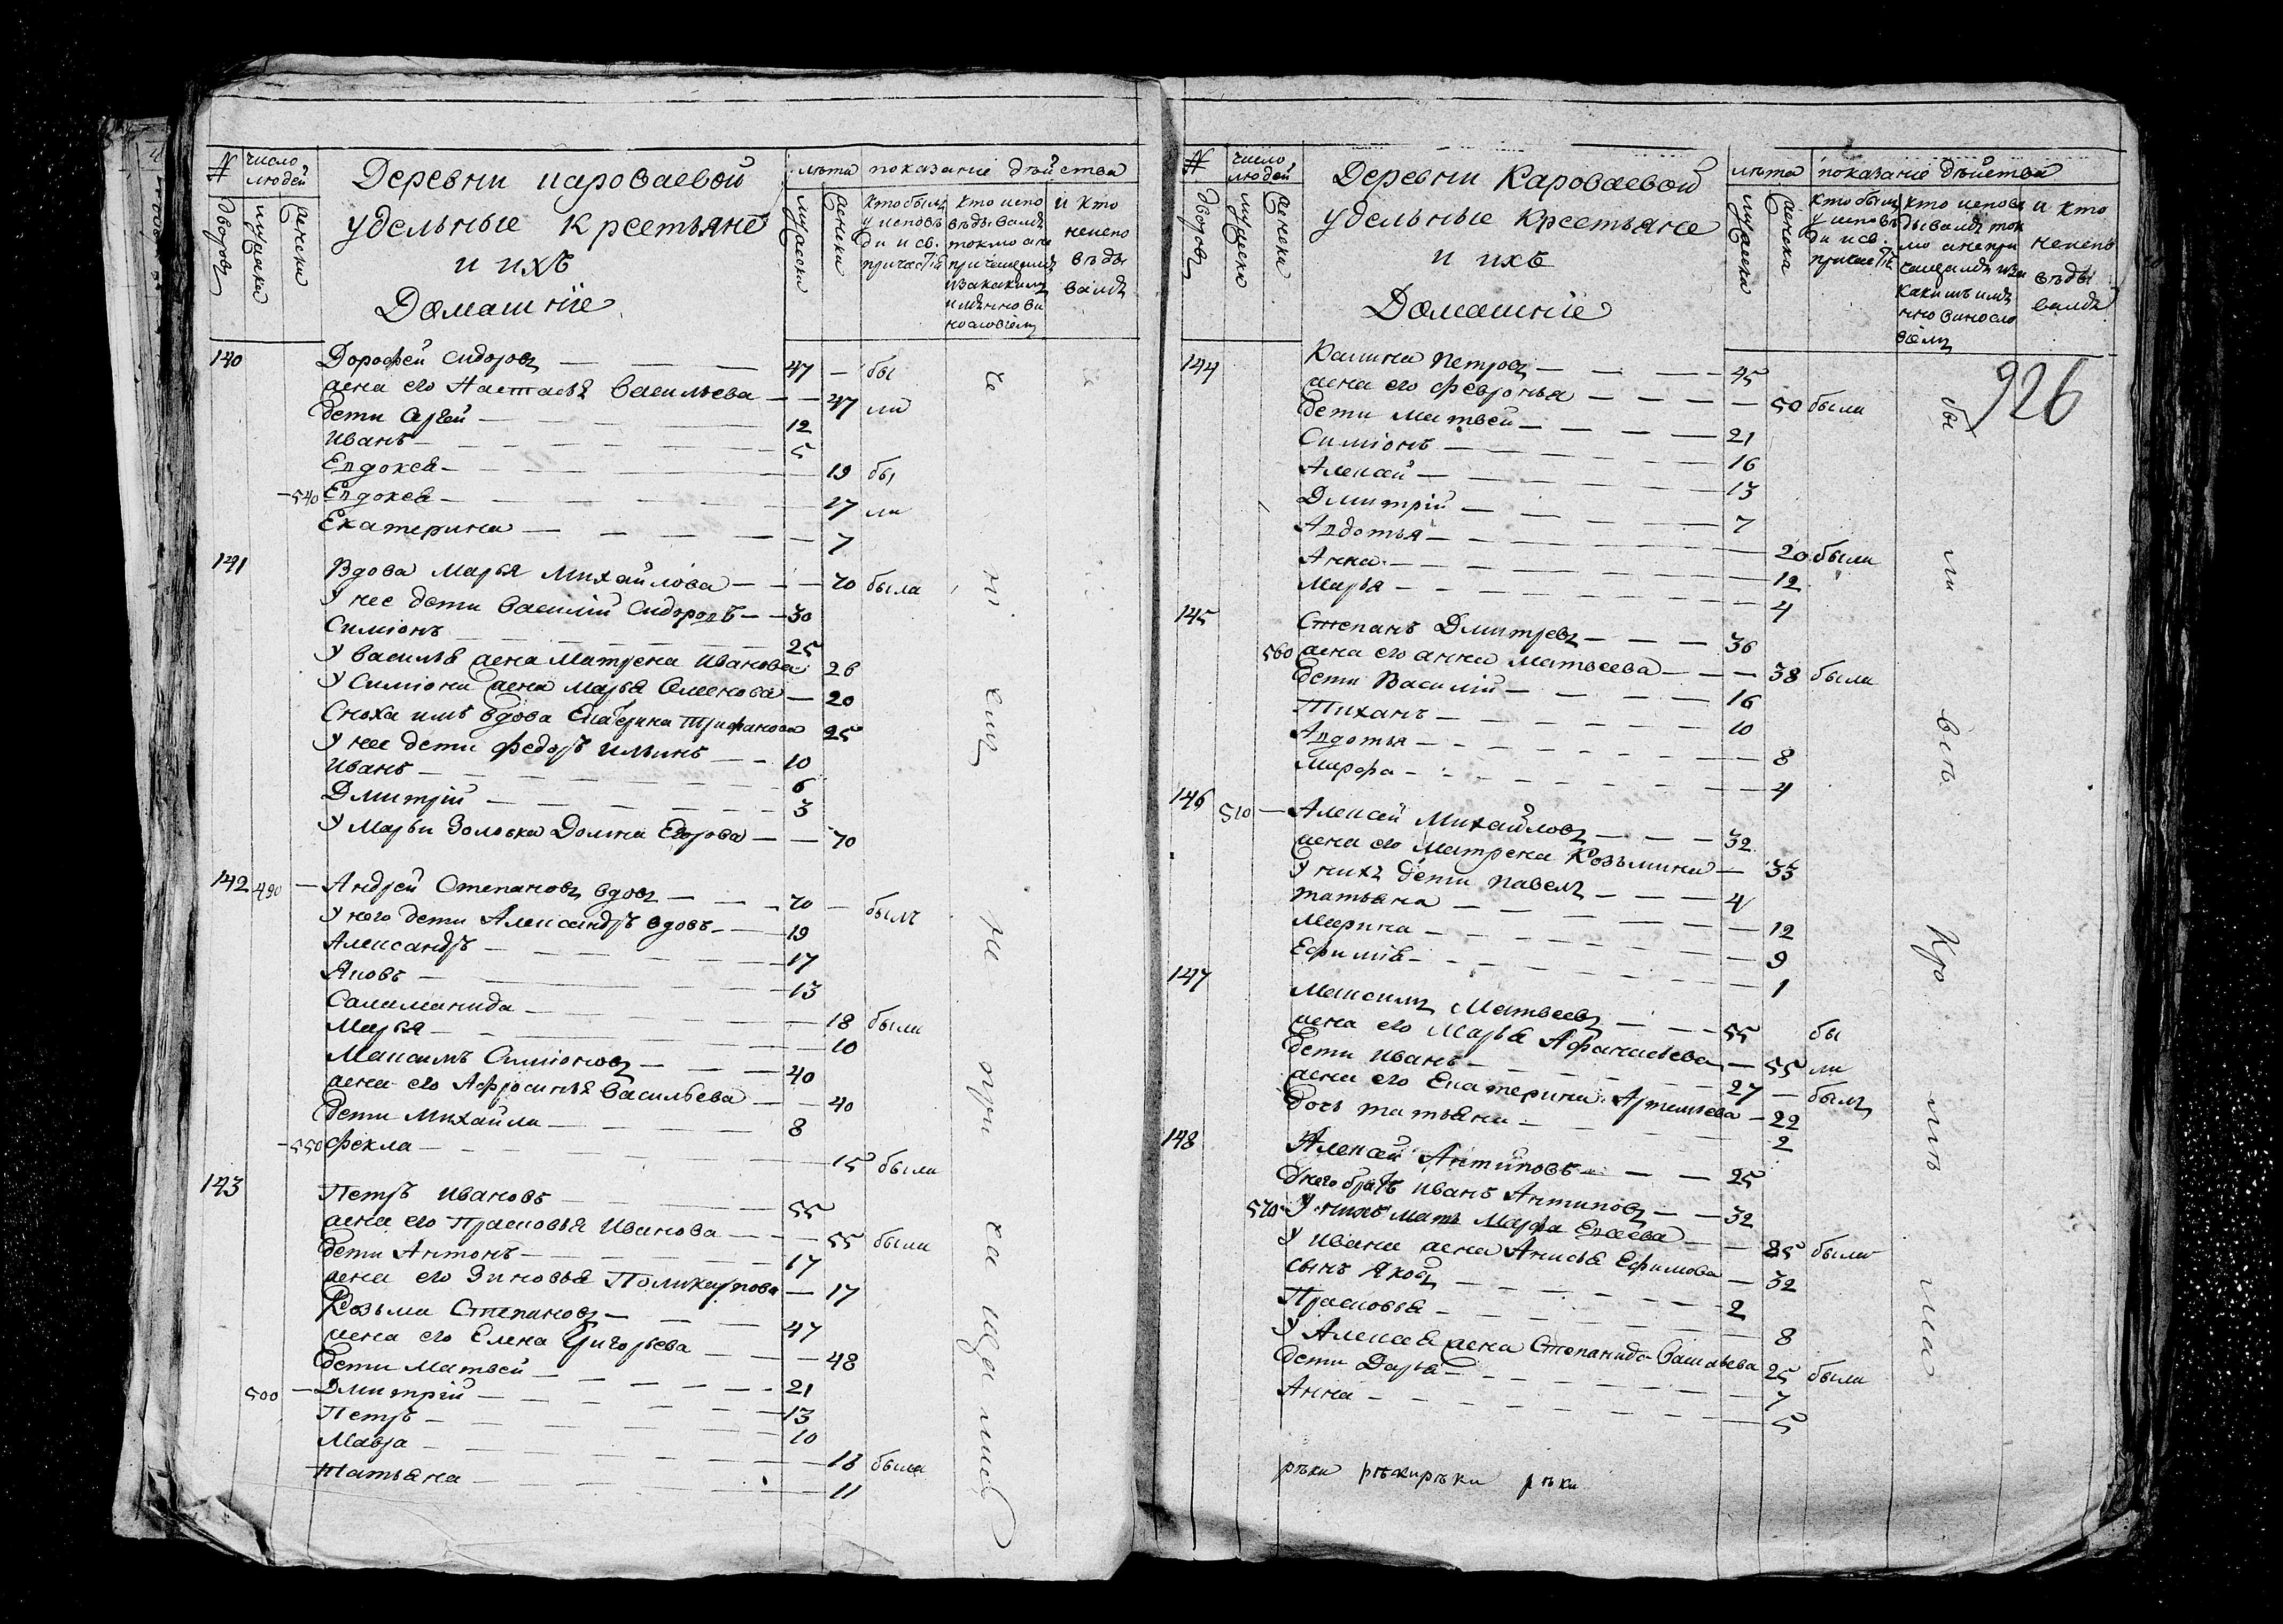 № число людей
дворовъ мужска женска
Деревни Кароваевой
удельные крестьяне
и ихъ
Домашніе
лѣта показаніе дѣйства
мужска женска
кто былъ у исповѣди и св. причастія
кто исповѣдывался токмо а не причащался и за какимъ имѣнно винословіемъ
и кто не исповѣдывался
140 Дорофей Сидоровъ 47 бы
жена его Настасья Васильева 47 ли
дети Сергей 12
Иванъ 5
Евдокея 19 бы
540 Евдокея 17 ли
Екатерина 7
141 Вдова Марья Михайлова 70 была
У нее дети Василій Сидоровъ 30
Симіонъ 25
У Василья жена Матрена Иванова 26
У Симіона жена Марья Семенова 20
Сноха имъ вдова Екатерина Трифанова 25
У нее дети Федоръ Ильинъ 10
Иванъ 6
Дмитрій 3
У Марьи Золовка Домна Егорова 70
142 490 Андрей Степановъ вдовъ 70 былъ
У него дети Александръ вдовъ 19
Александръ 17
Яковъ 13
Саламанида 18 была
Марья 10
Максимъ Симіоновъ 40
жена его Афросинья Васильева 40
дети Михайла 8
550 Фекла 15 была
143 Петръ Ивановъ 55
жена его Прасковья Иванова 55 была
дети Антонъ 17
жена его Зиновья Поликарпова 17
Козьма Степановъ 47
жена его Елена Григорьева 48
дети Матвей 21
500 Дмитрій 13
Петръ 10
Мавра 18 была
Татьяна 11
№ число людей
дворовъ мужска женска
Деревни Кароваевой
удельные крестьяне
и ихъ
Домашніе
лѣта показаніе дѣйства
мужска женска
кто былъ у исповѣди и св. причастія
кто исповѣдывался токмо а не причащался и за какимъ имѣнно винословіемъ
и кто не исповѣдывался
926
144 Калина Петровъ 45
жена его Февронья 50 была
дети Матвей 21
Симіонъ 16
Алексей 13
Дмитрій 7
Авдотья 20 была
Анна 12
Марья 4
145 Степанъ Дмитревъ 36
560 жена его Анна Матвеева 38 была
дети Василій 16
Тиханъ 10
Авдотья 8
Марфа 4
146 510 Алексей Михайловъ 32
жена его Матрена Козьмина 33
У нихъ дети Павелъ 4
Татьяна 12
Марина 9
Ефимія 1
147 Максимъ Матвеевъ 55 бы
жена его Марья Афанасьева 55 ли
дети Иванъ 27 былъ
жена его Екатерина Артемьева 22
дочь Татьяна 2
148 Алексей Антиповъ 25
У него братъ Иванъ Антиповъ 32
570 У нихъ мать Марфа Евсеева 85 была
У Ивана жена Анисья Ефимова 32
сынъ Яковъ 2
Прасковья 8
У Алексея жена Степанида Васильева 25 была
дети Дарья 7
Анна 5
рѣки рѣкирѣки рѣки